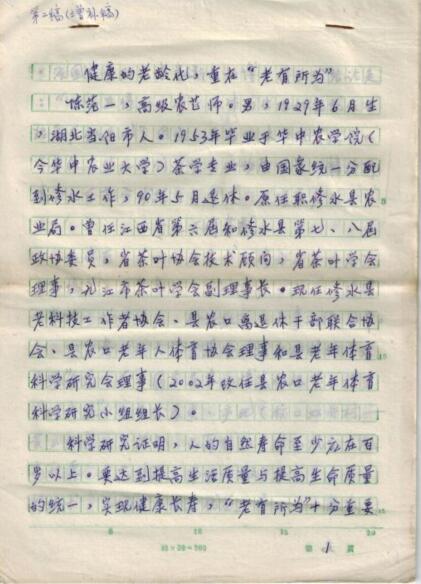 第二稿(增补稿)
健康的老龄化，重在“老有所为”
陈范一，高级农艺师。男，1929年6月生
，湖北当阳市人。1953年毕业于华中农学院（
今华中农业大学）茶学专业，由国家统一分配
到修水工作，90年5月退休。原任职修水县农
业局。曾任江西省第六届和修水县第七、八届
政协委员，省茶叶协会技术顾问，省茶叶学会
理事，九江市茶叶学会副理事长。现任修水县
老科技工作者协会、县农口离退休干部联合协
会、县农口老年人体育协会理事和县老年体育
科学研究会理事（2002年改任县农口老年体育
科学研究小组组长）。
科学研究证明，人的自然寿命至少应在百
岁以上。要达到提高生活质量与提高生命质量
的统一，实现健康长寿，“老有所为”十分重要
5 10 15 20
第 1 页